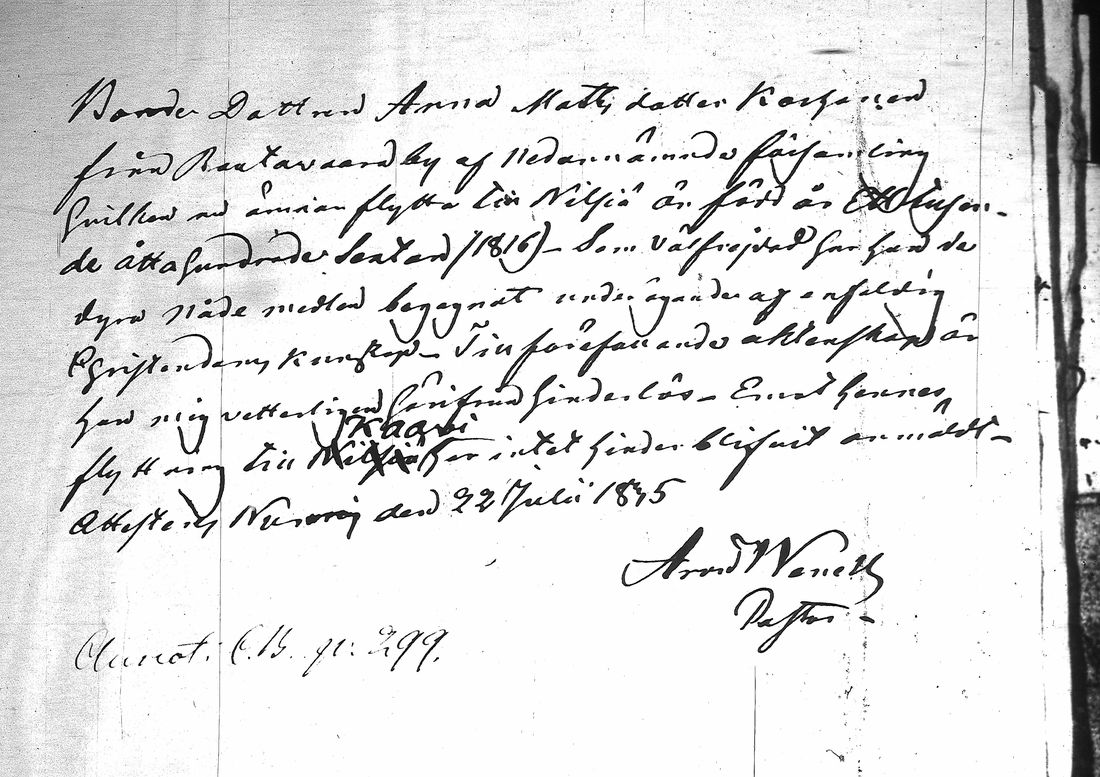 Bonde Dottren Anna Matts dotter Korhonen
från Rautavaara by af Nedannämnde församling
hvilken nu ämnar flytta till Nilsiä är född år Ett tusen-
de åttahundrade Sextand /1816/ – Som välfrejdad har hon de
dyra Nåde medlen begagnat under ägande af enfaldig
Christendoms kunskap – Till förefallande äktenskap är
hon mig vetterligen härifrån hinderlös – Emot hennes
Kaavi
flyttning till Nilsiä har intet hinder blifvit anmäldt –
Attesteras Nurmis den 22 Julii 1845
Arvid Wenell
Pastor –
Annot. C.B. p. 299.